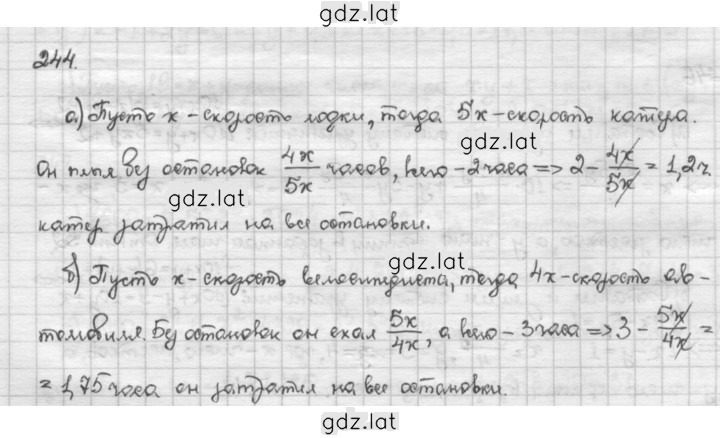 gdz.lat
244.
а) Пусть x - скорость лодки, тогда 5x - скорость катера.
gdz.lat
Он плыл без остановок 4x/5x часов, всего - 2 часа => 2 - 4x/5x = 1,2 ч.
gdz.lat
катер затратил на все остановки.
gdz.lat
б) Пусть x - скорость велосипедиста, тогда 4x - скорость ав-
томобиля. Без остановок он ехал 5x/4x, а всего - 3 часа => 3 - 5x/4x =
= 1,75 часа он затратил на все остановки.
gdz.lat